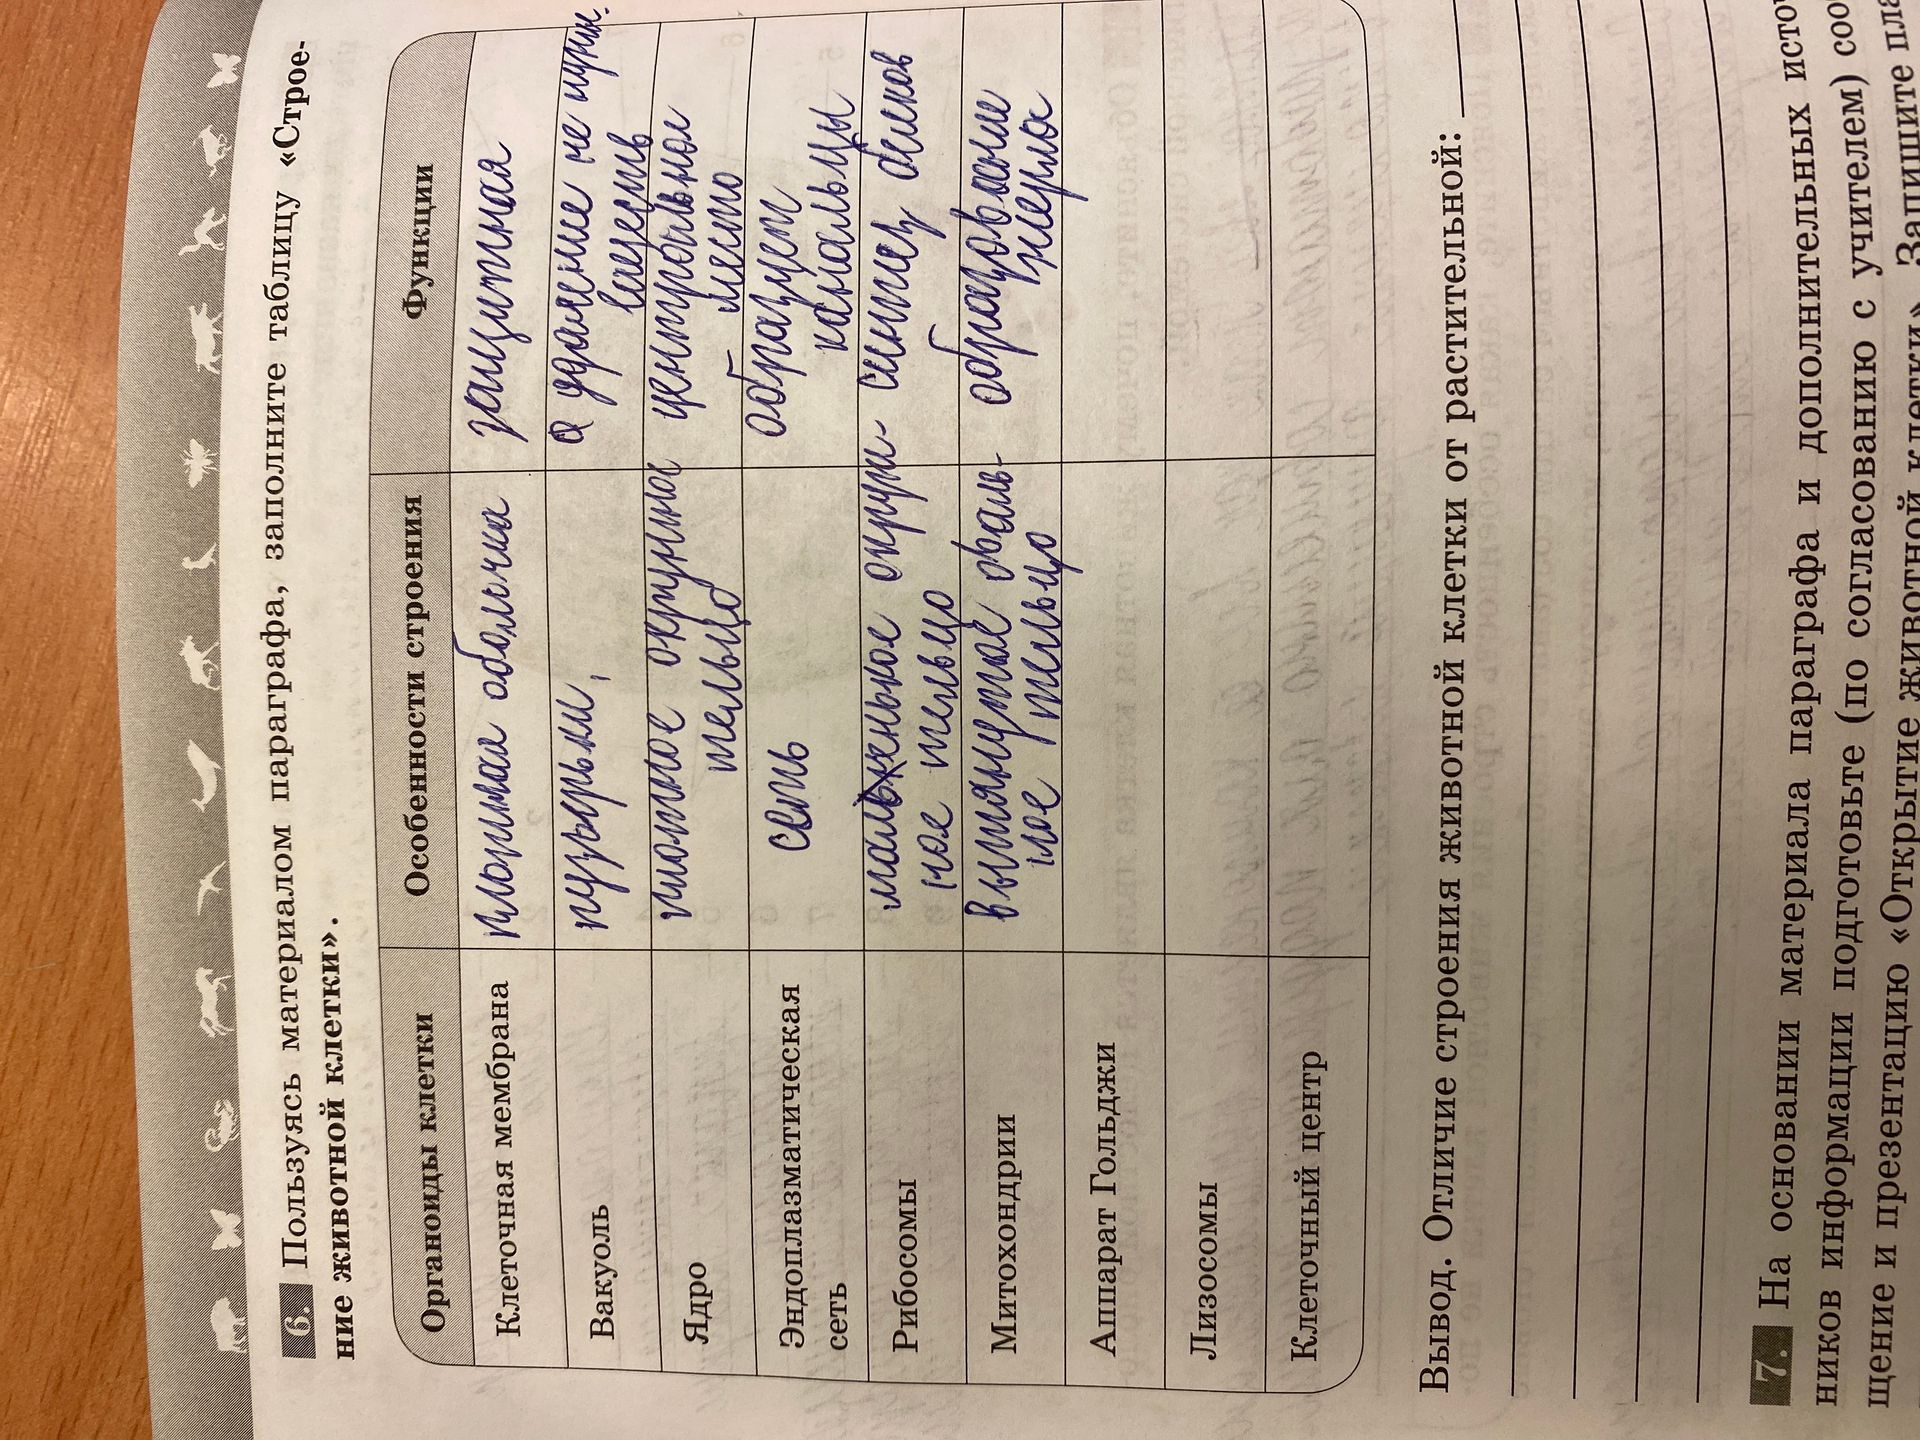 6. Пользуясь материалом параграфа, заполните таблицу «Строе-
ние животной клетки».
Органоиды клетки Особенности строения Функции
Клеточная мембрана плотная оболочка защитная
Вакуоль пузырьки, удаление не нужн.
веществ
Ядро плотное округлное центральное
тельцо место
Эндоплазматическая сеть образует
сеть канальцы
Рибосомы округ- синтез белков
ное тельцо
Митохондрии вытянутое оваль- образование
ное тельцо
Аппарат Гольджи
Лизосомы
Клеточный центр
Вывод. Отличие строения животной клетки от растительной:
7. На основании материала параграфа и дополнительных источ
ников информации подготовьте (по согласованию с учителем) сооб
щение и презентацию «Открытие животной клетки». Запишите пла